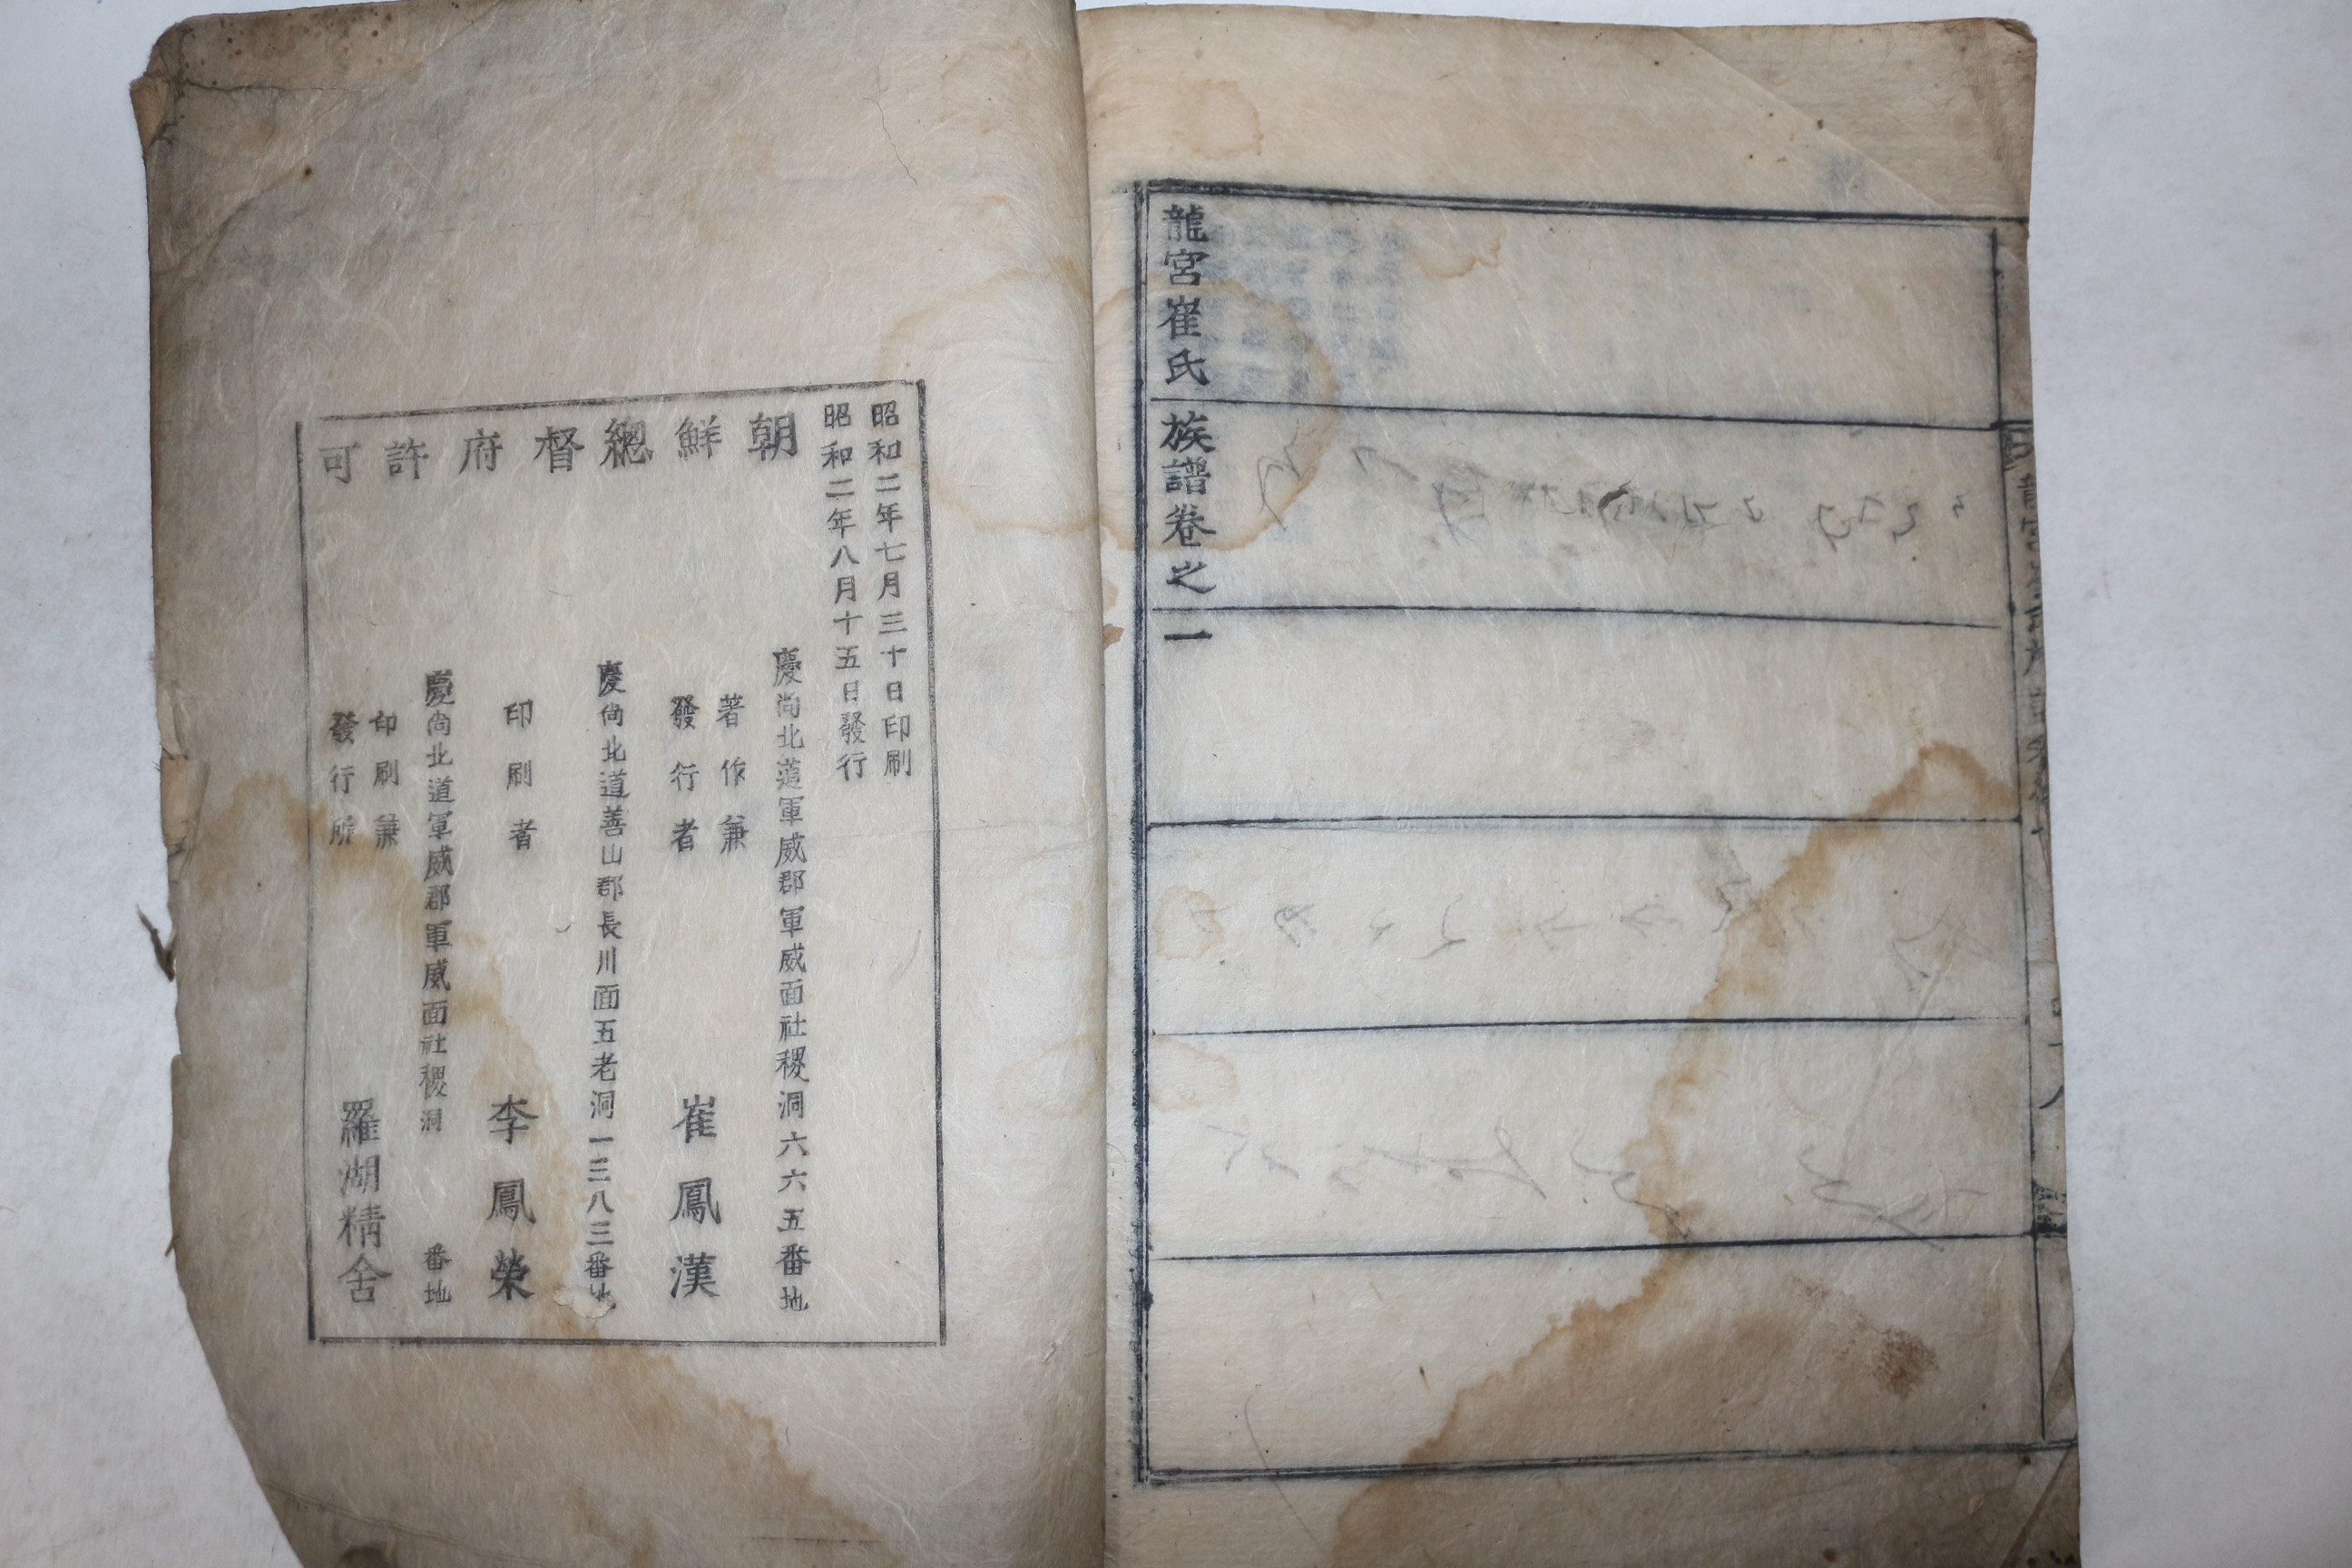 龍宮崔氏族譜卷之一
昭和二年七月三十日印刷
昭和二年八月十五日發行
朝鮮總督府許可
慶尙北道軍威郡軍威面社稷洞六六五番地
著作兼
發行者
崔鳳漢
慶尙北道善山郡長川面五老洞一三八三番地
印刷者
李鳳榮
慶尙北道軍威郡軍威面社稷洞 番地
印刷兼
發行所
羅湖精舍